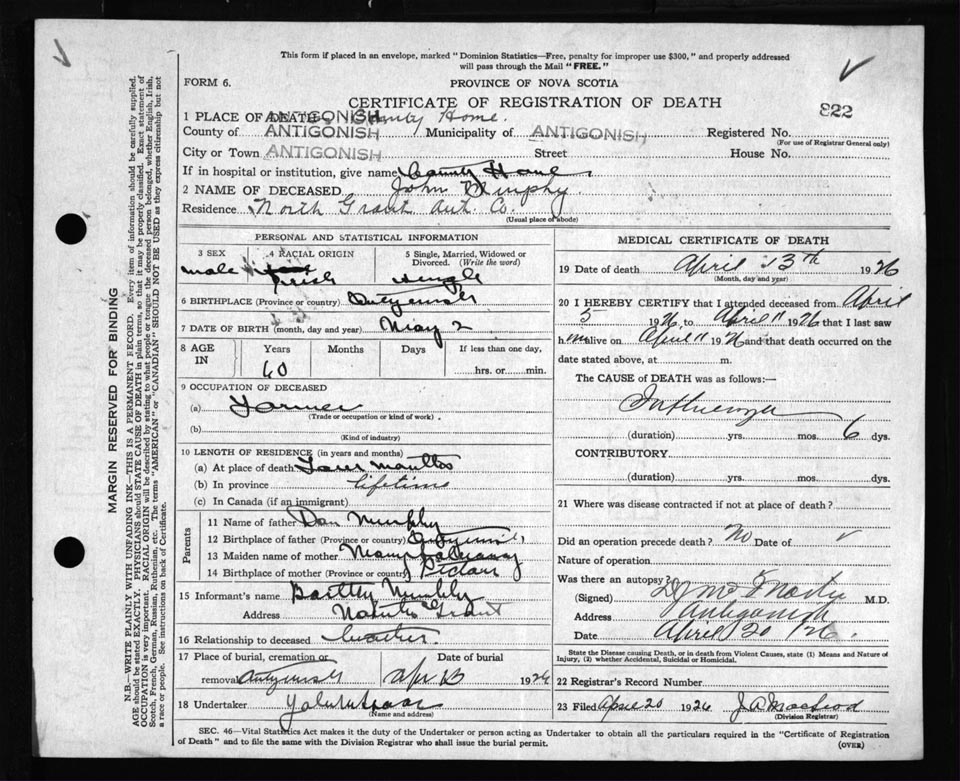 This form if placed in an envelope, marked "Dominion Statistics—Free, penalty for improper use $300," and properly addressed
will pass through the Mail "FREE."
FORM 6.
PROVINCE OF NOVA SCOTIA
CERTIFICATE OF REGISTRATION OF DEATH
822
1 PLACE OF DEATH— ANTIGONISH County Home.
County of ANTIGONISH Municipality of ANTIGONISH Registered No.
(For use of Registrar General only)
City or Town ANTIGONISH Street House No.
If in hospital or institution, give name County Home
2 NAME OF DECEASED John Murphy
Residence North Grant Ant. Co.
(Usual place of abode)
PERSONAL AND STATISTICAL INFORMATION
3 SEX male
4 RACIAL ORIGIN Irish
5 Single, Married, Widowed or Divorced. (Write the word) single
6 BIRTHPLACE (Province or country) Antigonish
7 DATE OF BIRTH (month, day and year) May 2
8 AGE IN Years Months Days If less than one day,
60 hrs. or min.
9 OCCUPATION OF DECEASED
(a) Farmer
(Trade or occupation or kind of work)
(b)
(Kind of industry)
10 LENGTH OF RESIDENCE (in years and months)
(a) At place of death months
(b) In province lifetime
(c) In Canada (if an immigrant)
Parents
11 Name of father Dan Murphy
12 Birthplace of father (Province or country) Antigonish
13 Maiden name of mother
14 Birthplace of mother (Province or country) Pictou
15 Informant's name Murphy
Address Grant
16 Relationship to deceased
17 Place of burial, cremation or removal Antigonish
Date of burial Apr 1926
18 Undertaker
(Name and address)
MEDICAL CERTIFICATE OF DEATH
19 Date of death April 13th 1926
(Month, day and year)
20 I HEREBY CERTIFY that I attended deceased from April
5 1926 to April 11 1926 that I last saw
him alive on April 11 1926 and that death occurred on the
date stated above, at m.
The CAUSE of DEATH was as follows:—
Influenza
(duration) yrs. mos. 6 dys.
CONTRIBUTORY
(duration) yrs. mos. dys.
21 Where was disease contracted if not at place of death?
Did an operation precede death? No Date of
Nature of operation
Was there an autopsy?
(Signed) M.D.
Address Antigonish
Date April 20 /26.
State the Disease causing Death, or in death from Violent Causes, state (1) Means and Nature of
Injury, (2) whether Accidental, Suicidal or Homicidal.
22 Registrar's Record Number
23 Filed April 20 1926 J A Macleod
(Division Registrar)
SEC. 46—Vital Statistics Act makes it the duty of the Undertaker or person acting as Undertaker to obtain all the particulars required in the "Certificate of Registration
of Death" and to file the same with the Division Registrar who shall issue the burial permit.
(OVER)
MARGIN RESERVED FOR BINDING
N.B.—WRITE PLAINLY WITH UNFADING INK—THIS IS A PERMANENT RECORD. Every item of information should be carefully supplied.
AGE should be stated EXACTLY. PHYSICIANS should STATE CAUSE OF DEATH in plain terms, so that it may be properly classified. Exact statement of
OCCUPATION is very important. RACIAL ORIGIN will be described by stating to what people or tongue the deceased person belonged, whether English, Irish,
Scotch, French, German, Russian, Ruthenian, etc. The terms "AMERICAN" or "CANADIAN" SHOULD NOT BE USED as they express citizenship but not
a race or people. See instructions on back of Certificate.